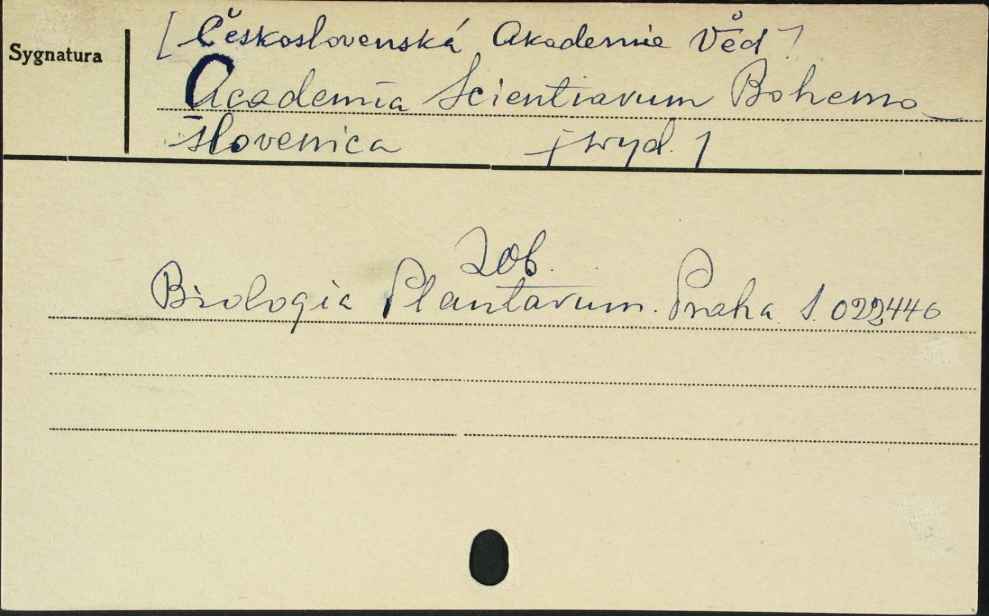 Sygnatura
[Československá Akademie Věd]
Academia Scientiarum Bohemo-
slovenica [wyd.]
Zob.
Biologia Plantarum. Praha S. 022446